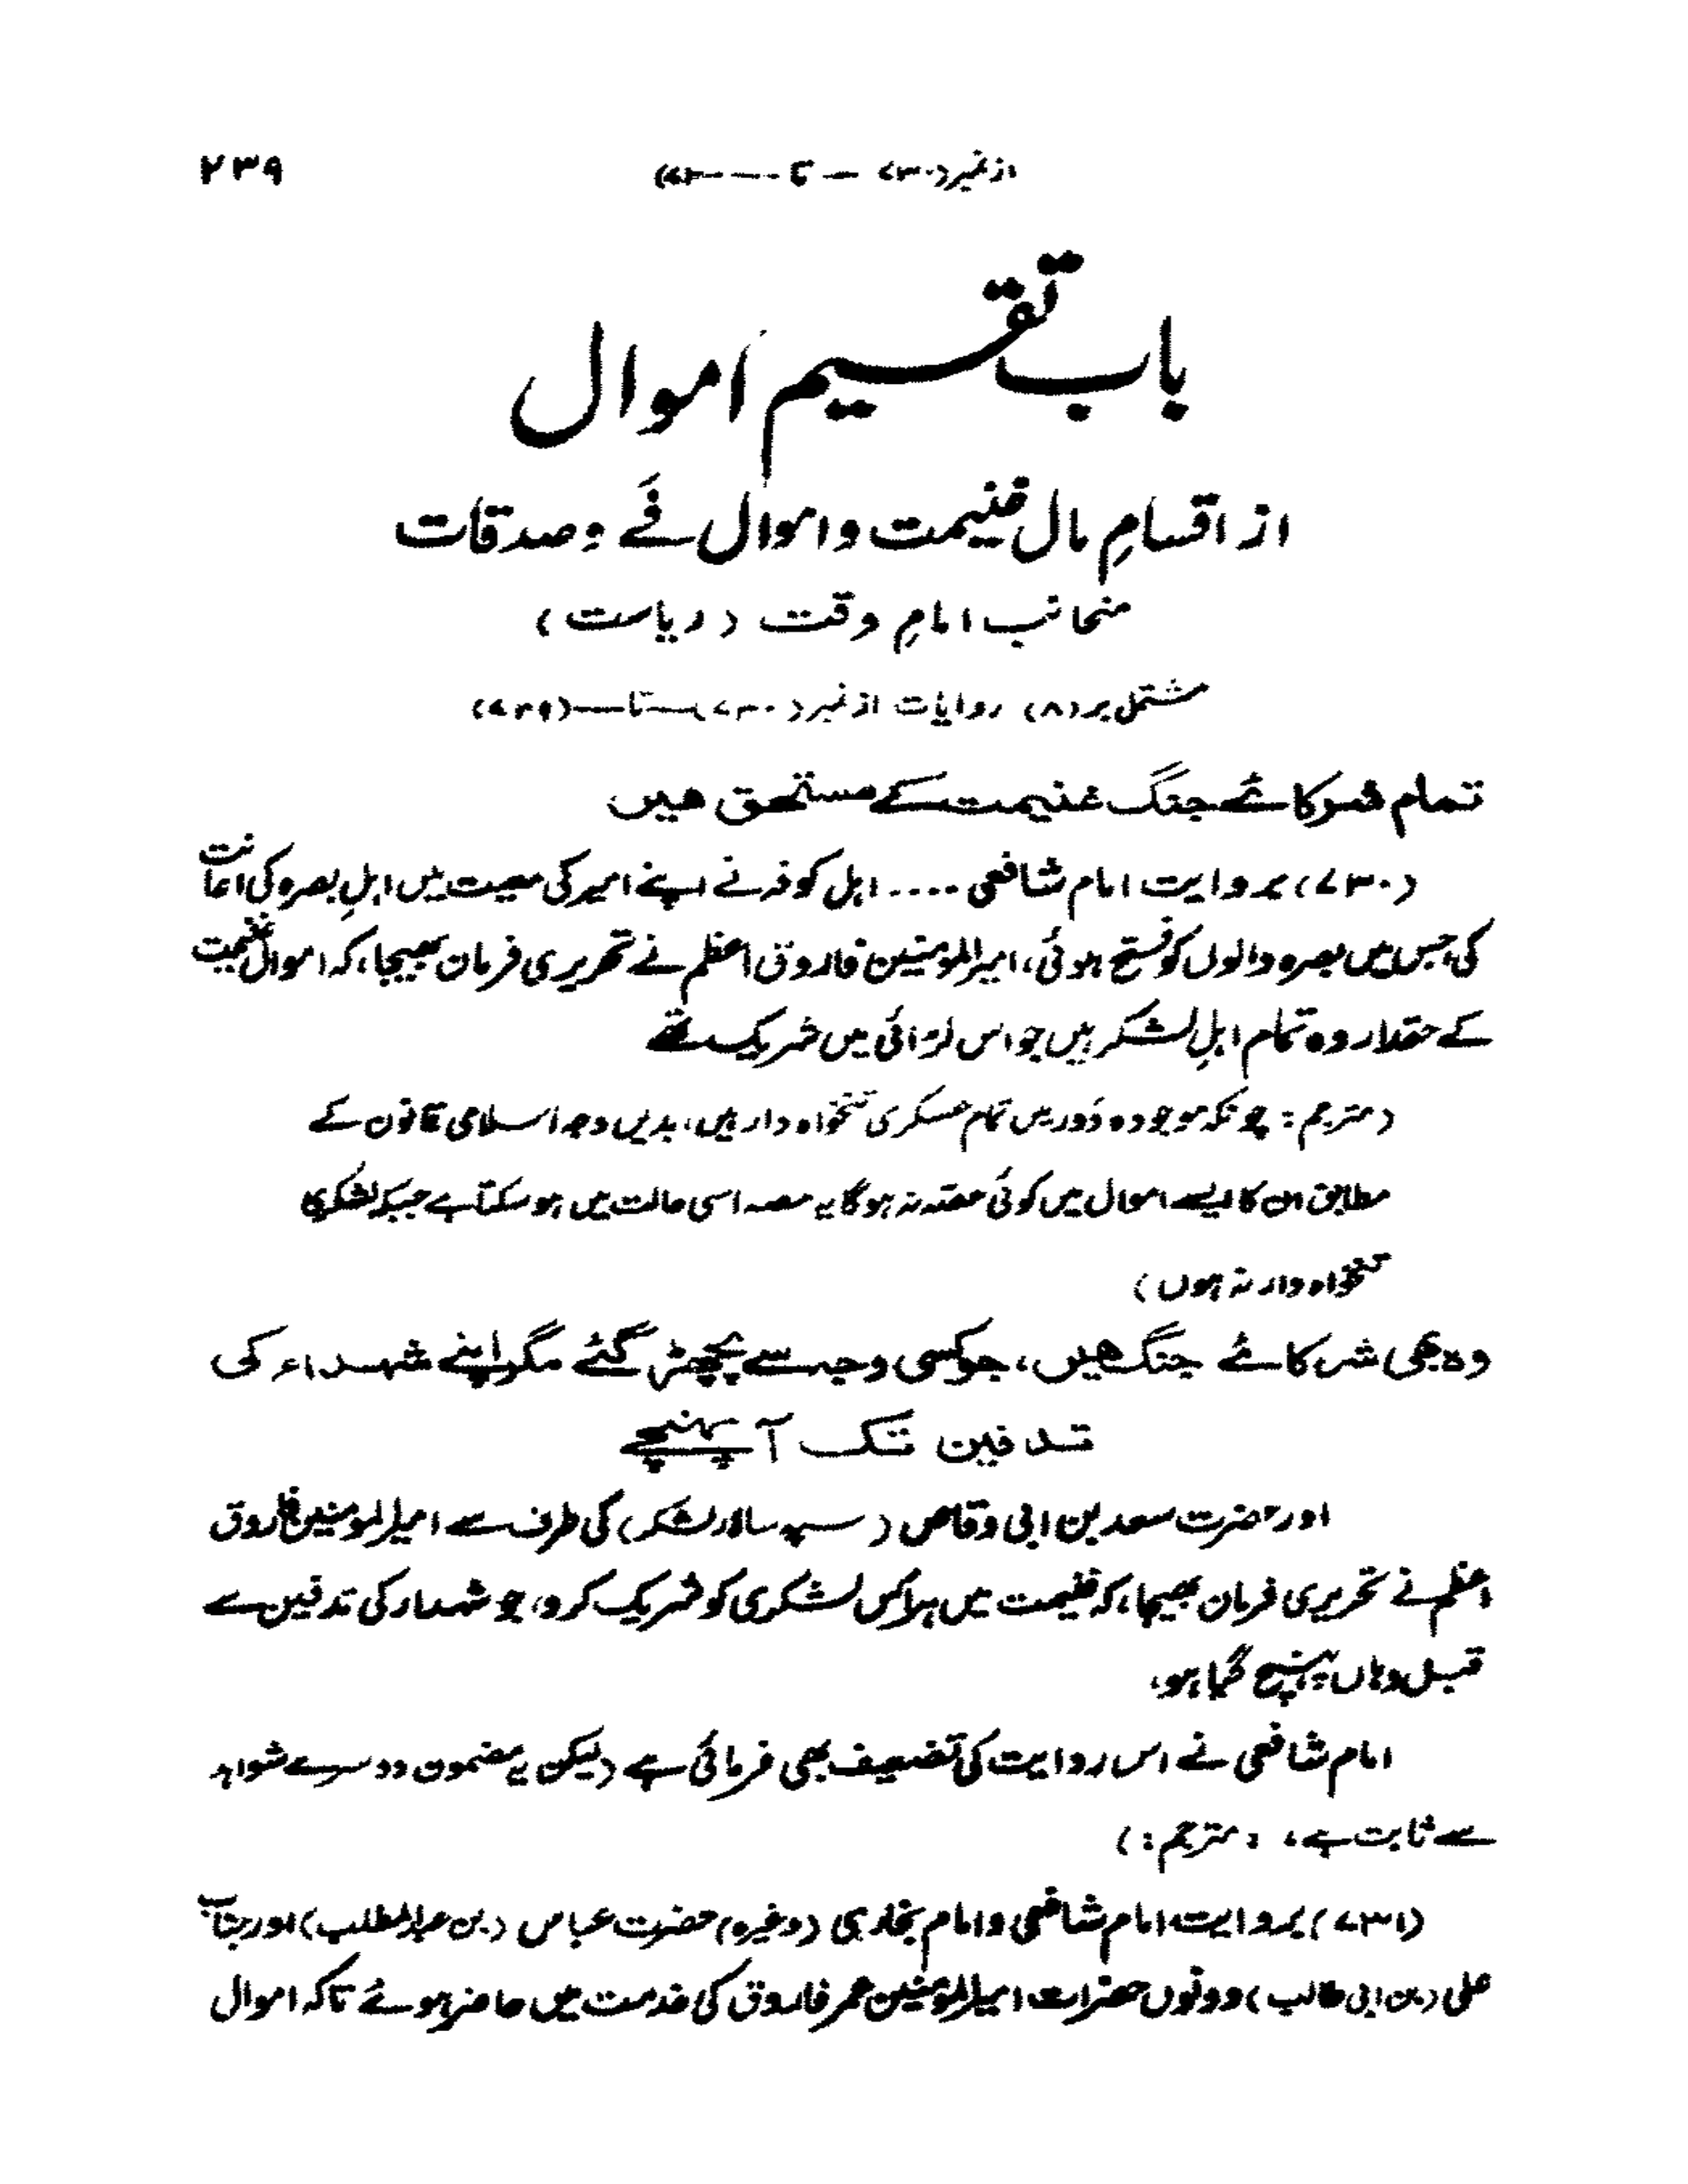 از نمبر(۷۳۰ — تا — ۔۔۔) ۲۳۹
باب تقسیم اموال
از اقسامِ مال غنیمت و اموال فَے و صدقات
منجانب امامِ وقت (ریاست)
مشتمل بر (۸) روایات از نمبر(۷۳۰)—تا—(۷۳۹)
تمام شرکائے جنگ غنیمت کے مستحق ھیں
(۷۳۰) بروایت امام شافعی .... اہل کوفہ نے اپنے امیر کی معیت میں اہلِ بصرہ کی اعانت
کی، جس میں بصرہ والوں کو فتح ہوئی، امیر المومنین فاروق اعظم نے تحریری فرمان بھیجا، کہ اموال غنیمت
کے حقدار وہ تمام اہلِ لشکر ہیں جو اس لڑائی میں شریک تھے
(مترجم: چونکہ موجودہ دَور میں تمام عسکری تنخواہ دار ہیں، بدیں وجہ اسلامی قانون کے
مطابق ان کا ایسے اموال میں کوئی حصّہ نہ ہوگا یہ حصہ اسی حالت میں ہو سکتا ہے جبکہ لشکری
تنخواہ دار نہ ہوں)
وہ بھی شرکائے جنگ ھیں، جو کسی وجہ سے پچھڑ گئے مگر اپنے شہداء کی
تدفین تک آ پہنچے
اور حضرت سعد بن ابی وقاص (سپہ سالار لشکر) کی طرف سے امیر المومنین فاروق
اعظم نے تحریری فرمان بھیجا، کہ غنیمت میں ہر اُس لشکری کو شریک کرو، جو شہداء کی تدفین سے
قبل وہاں پہنچ گیا ہو،
امام شافعی نے اس روایت کی تضعیف بھی فرمائی ہے (لیکن یہ مضمون دوسرے شواہد
سے ثابت ہے، :مترجم:)
(۷۳۱) بروایت امام شافعی و امام بخاری (وغیرہ) حضرت عباس (بن عبدالمطلب) اور جناب
علی (بن ابی طالب) دونوں حضرات امیر المومنین عمر فاروق کی خدمت میں حاضر ہوئے تاکہ اموال